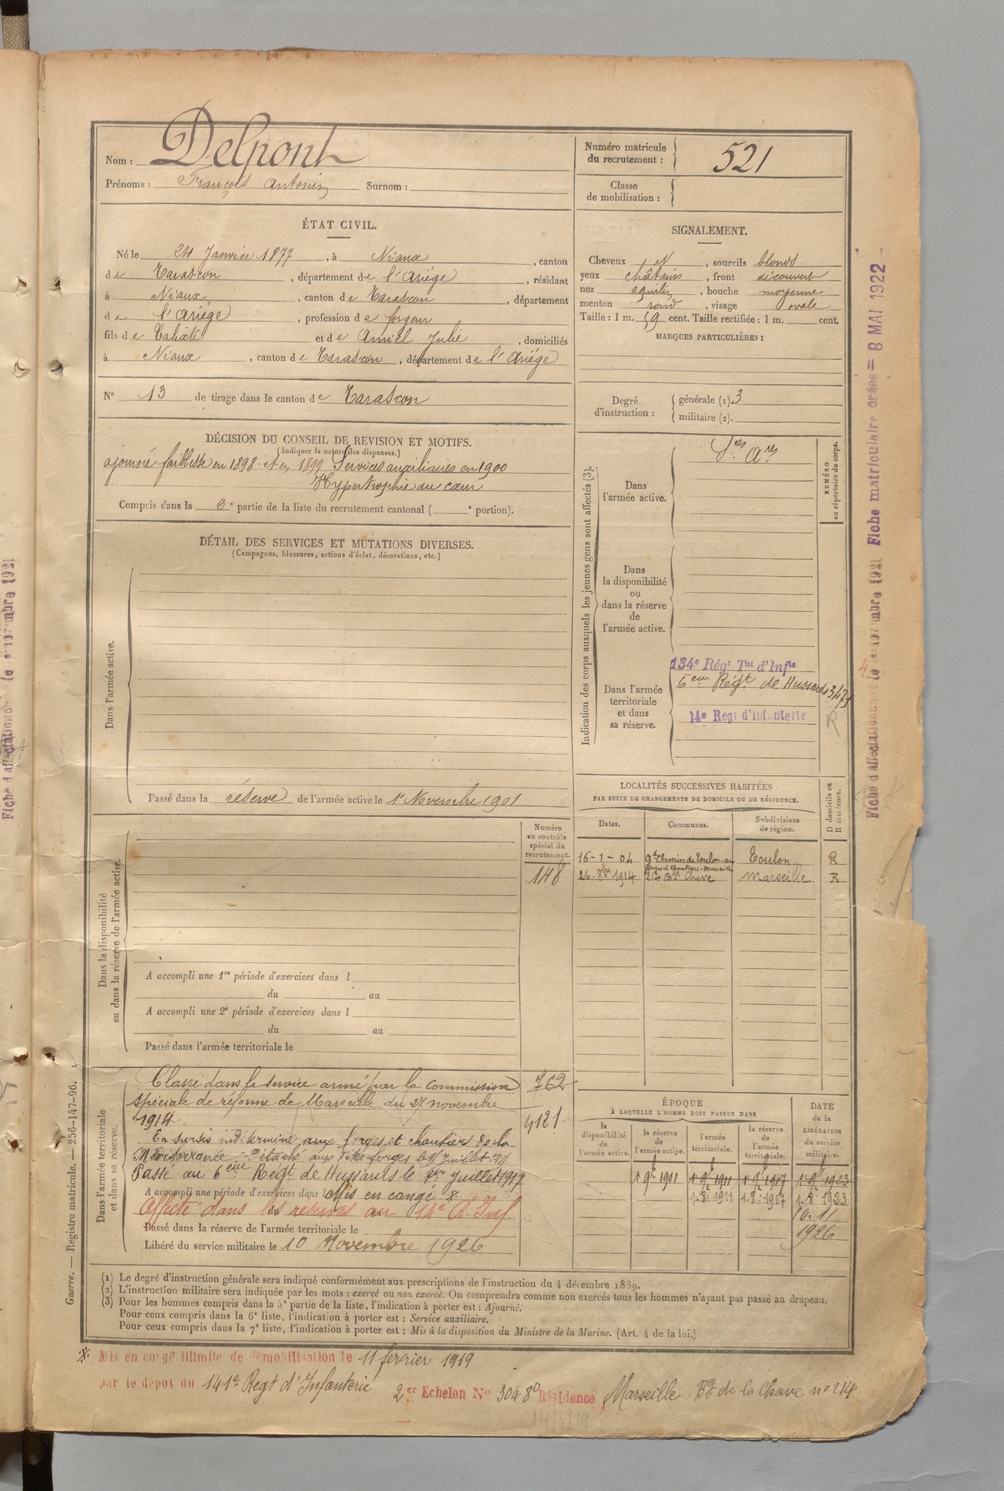 Nom : Delpont
Prénoms : François Antonin Surnom :
Numéro matricule du recrutement : 521
Classe de mobilisation :
ÉTAT CIVIL.
Né le 24 Janvier 1877, à Niaux, canton
de Tarascon, département de l'Ariége, résidant
à Niaux, canton de Tarascon, département
de l'Ariége, profession de forgeur
fils de et de Amiel Julie, domiciliés
à Niaux, canton de Tarascon, département de l'Ariége
N° 13 de tirage dans le canton de Tarascon
SIGNALEMENT.
Cheveux et, sourcils blonds
yeux châtains, front découvert
nez aquilin, bouche moyenne
menton rond, visage ovale
Taille : 1 m. 59 cent. Taille rectifiée : 1 m. cent.
MARQUES PARTICULIÈRES :
Degré d'instruction : générale (1). 3
militaire (2).
DÉCISION DU CONSEIL DE REVISION ET MOTIFS.
(Indiquer la nature des dispenses.)
ajourné faiblesse en 1898 et en 1899 Services auxiliaires en 1900
Hypertrophie du cœur
Compris dans la 6e partie de la liste du recrutement cantonal ( e portion).
DÉTAIL DES SERVICES ET MUTATIONS DIVERSES.
(Campagnes, blessures, actions d'éclat, décorations, etc.)
Dans l'armée active.
Passé dans la réserve de l'armée active le 1er Novembre 1901
Indication des corps auxquels les jeunes gens sont affectés (3).
NUMÉRO au répertoire du corps.
Dans l'armée active.
Ses Aes
Dans la disponibilité ou dans la réserve de l'armée active.
Dans l'armée territoriale et dans sa réserve.
134e Régt Tal d'Infie
6eme Régt de Hussards
14e Regt d'Infanterie
R
LOCALITÉS SUCCESSIVES HABITÉES
PAR SUITE DE CHANGEMENTS DE DOMICILE OU DE RÉSIDENCE.
Dates. Communes. Subdivisions de région. D domicile ou R résidence.
16-1-04 Toulon R
26 8bre 1914 Bd Chave Marseille R
Numéro au contrôle spécial du recrutement.
148
Dans la disponibilité ou dans la réserve de l'armée active.
A accompli une 1re période d'exercices dans l
du au
A accompli une 2e période d'exercices dans l
du au
Passé dans l'armée territoriale le
Dans l'armée territoriale et dans sa réserve.
Classé dans le service armé par la commission 762
spéciale de réforme de Marseille du 27 novembre
1914. 4121
En sursis indéterminé aux forges et chantiers de la
Méditerranée.
Passé au 6eme Régt de Hussards le 1er Juillet 1917
A accompli une période d'exercices dans Mis en congé *
Affecté dans les réserves au 14e d'Inf
Passé dans la réserve de l'armée territoriale le
Libéré du service militaire le 10 Novembre 1926
ÉPOQUE
À LAQUELLE L'HOMME DOIT PASSER DANS
la disponibilité de l'armée active. la réserve de l'armée active. l'armée territoriale. la réserve de l'armée territoriale.
DATE de la LIBÉRATION du service militaire.
1 9bre 1901 1 9bre 1911 1 9bre 1917 1 9bre 1923
1.8.1911 1.8.1917 1.8.1923
10.11
1926
(1) Le degré d'instruction générale sera indiqué conformément aux prescriptions de l'instruction du 4 décembre 1889.
(2) L'instruction militaire sera indiquée par les mots : exercé ou non exercé. On comprendra comme non exercés tous les hommes n'ayant pas passé au drapeau.
(3) Pour les hommes compris dans la 5e partie de la liste, l'indication à porter est : Ajourné.
Pour ceux compris dans la 6e liste, l'indication à porter est : Service auxiliaire.
Pour ceux compris dans la 7e liste, l'indication à porter est : Mis à la disposition du Ministre de la Marine. (Art. 4 de la loi.)
* Mis en congé illimité de démobilisation le 11 février 1919
par le dépôt du 141e Regt d'Infanterie 2er Echelon No 30480 Résidence Marseille Bd de la Chave no 214
Guerre. — Registre matricule. — 256-147-96.
Fiche matriculaire créée = 8 MAI 1922